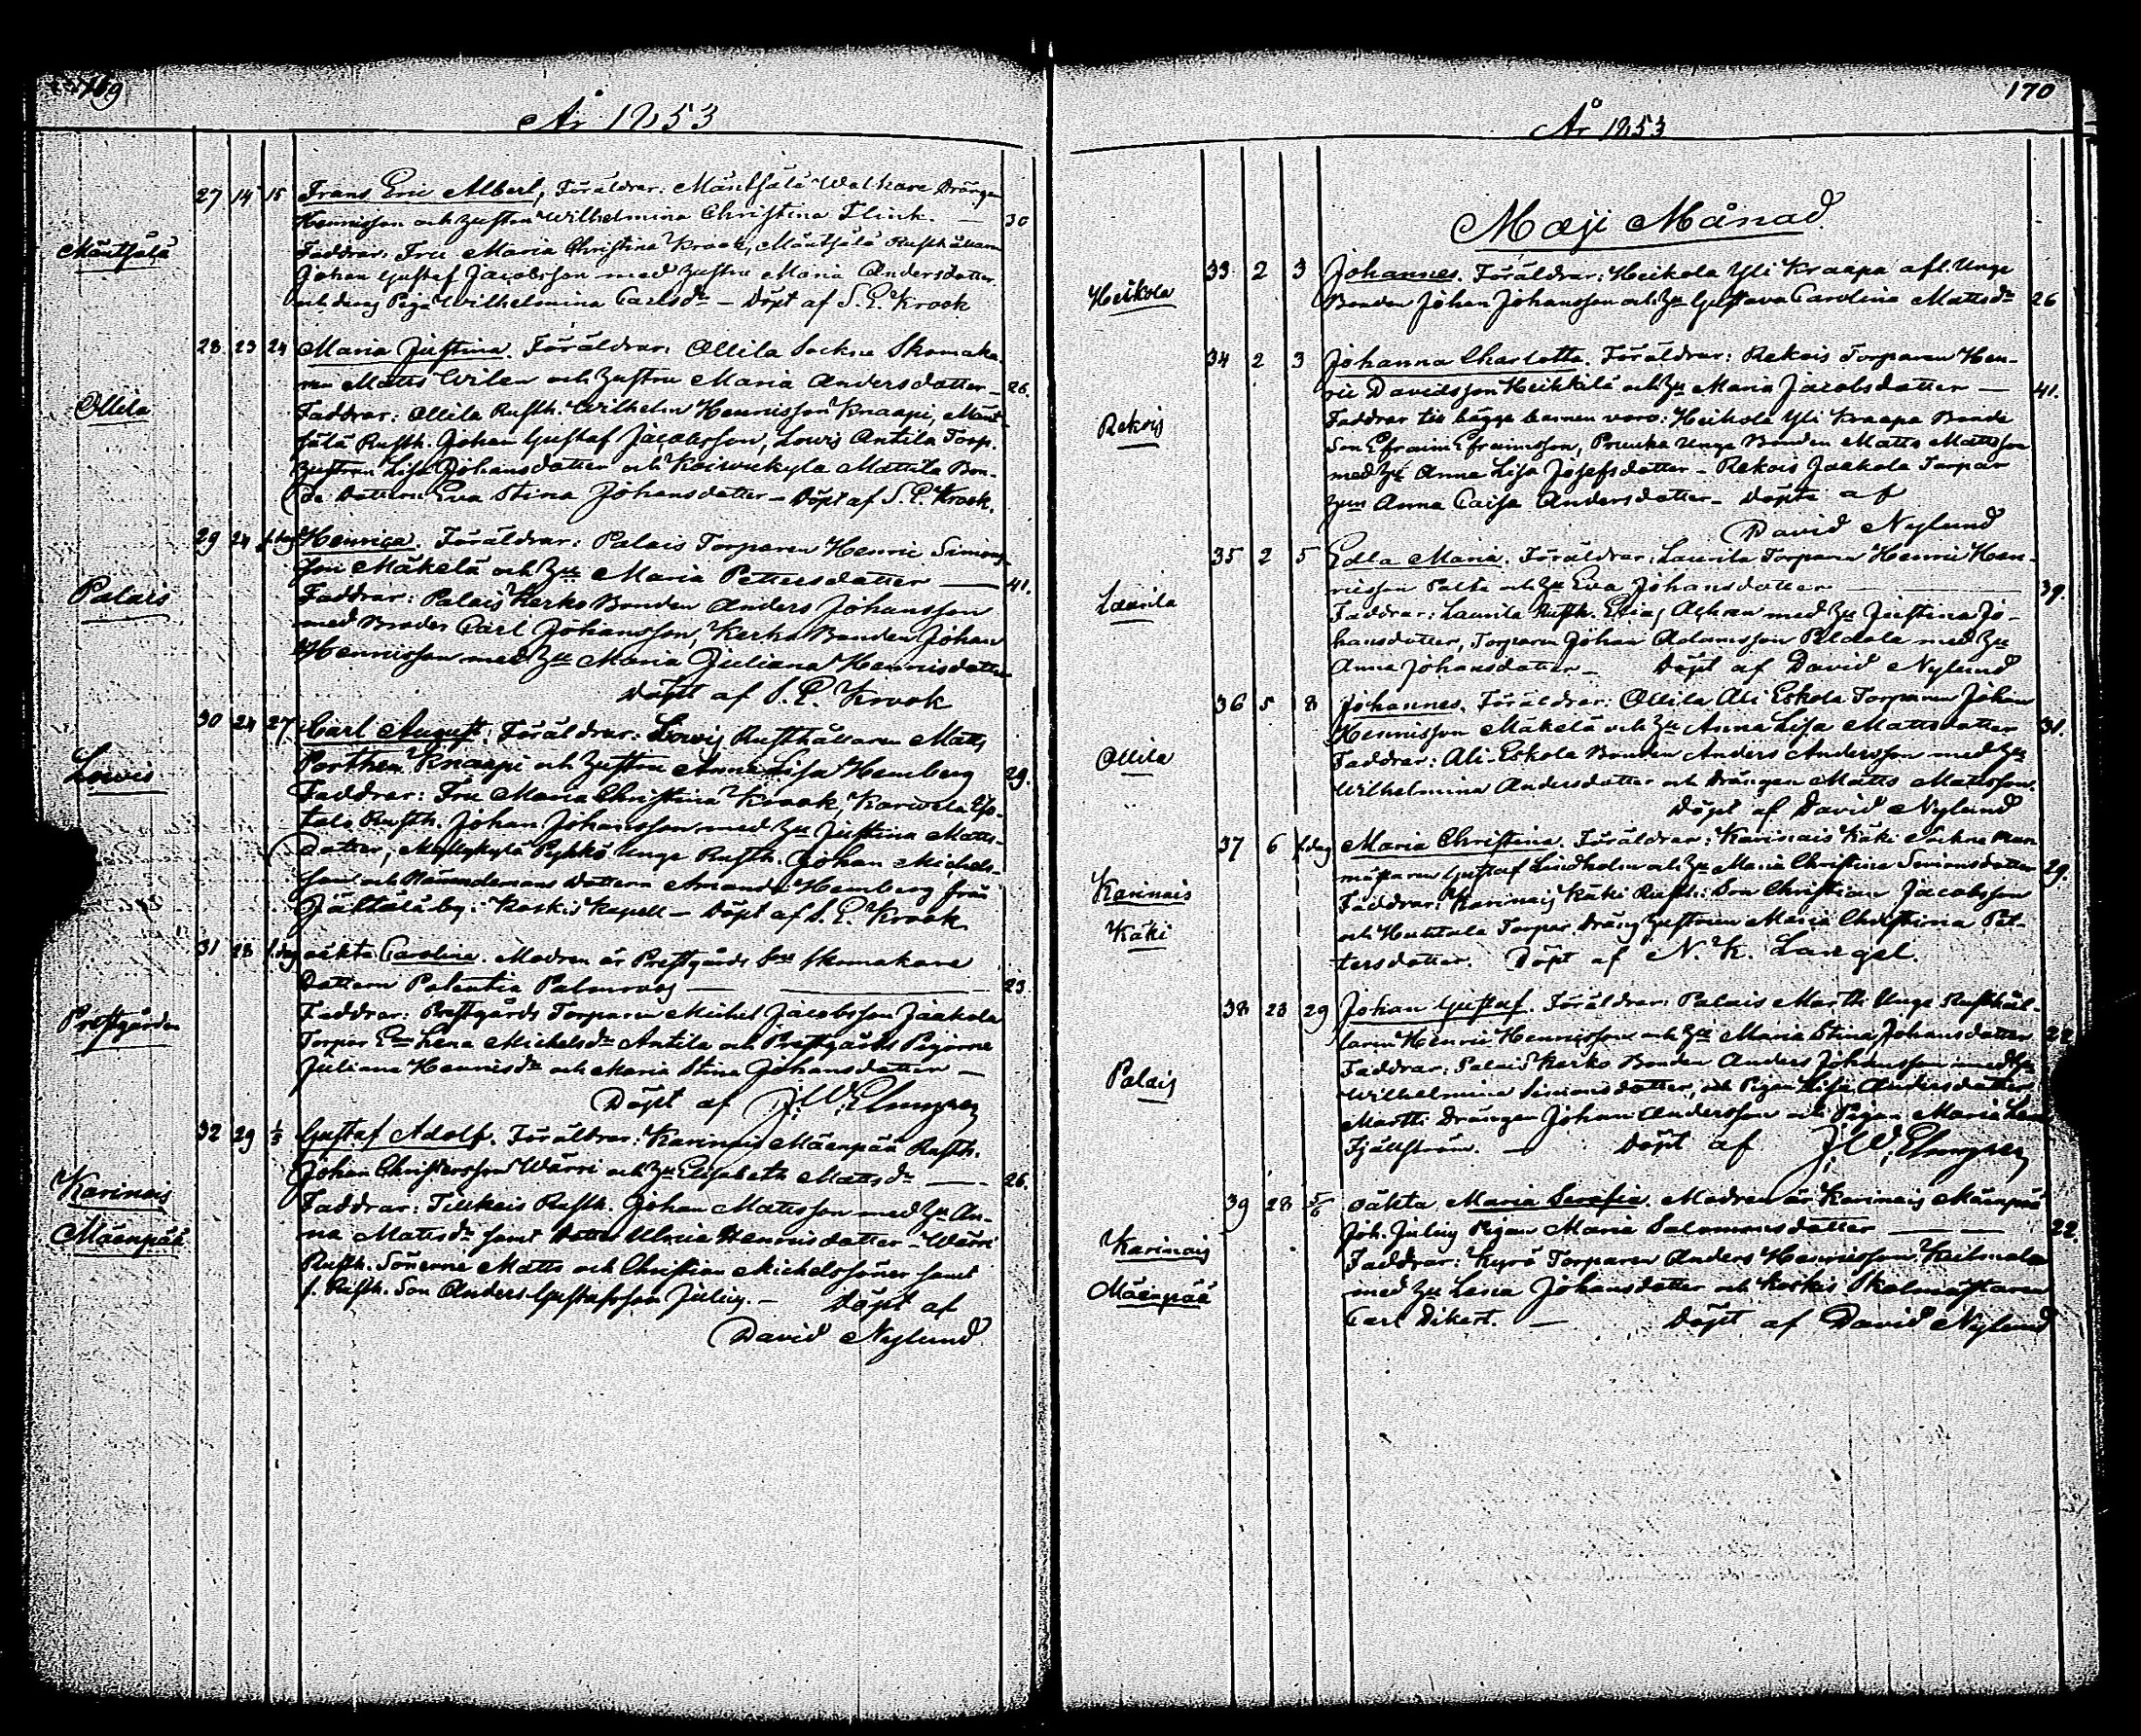 169
År 1853
27 14 15 Frans Eric Albert, Föräldrar: Mäntsälä Walkare Drängen
Henricsson och hustrun Wilhelmina Christina Flink. — 30
Mäntsälä
Faddrar: Fru Maria Christina Krook, Mäntsälä Rusthållaren
Johan Gustaf Jacobsson med hustru Maria Andersdotter
och deras Piga Wilhelmina Carlsdr — Döpt af S. E. Krook
28 23 24 Maria Justina. Föräldrar: Ollila Sockne Skomaka-
ren Matts Wilen och hustru Maria Andersdotter — 26.
Ollila
Faddrar: Ollila Rusth. Wilhelm Henricsson Knaapi, Mänt-
sälä Rusth. Johan Gustaf Jacobsson, Lowis Antila Torp.
hustrun Lisa Johansdotter och Koiwukylä Mattila Bon-
de Dottern Eva Stina Johansdotter — Döpt af S. E. Krook.
29 24 s. dag Henrica. Föräldrar: Palais Torparen Henric Simons-
son Mäkelä och hu Maria Pettersdotter — 41.
Palais
Faddrar: Palais Kerko Bonden Anders Johansson
med Broder Carl Johansson, Kerko Bonden Johan
Henricsson med hu Maria Juliana Henricsdotter
Döpt af S. E. Krook
30 24 27 Carl August. Föräldrar: Lowis Rusthållaren Matts
Porthen Knaapi och hustru Anna Lisa Hemberg 29.
Lowis
Faddrar: Fru Maria Christina Krook, Karwela
talo Rusth. Johan Johansson med hu Justina Matts-
dotter, Myllykylä Pyhkö unge Rusth. Johan Michels-
son och Nämndemans Dottern Amanda Hemberg från
by i Koskis Kapell — Döpt af S. E. Krook
31 28 s. dag oäkta Carolina. Modren är Prestgårds Skomakare
Dottern Palmroos — 23.
Prestgården
Faddrar: Prestgårds Torparen Michel Jacobsson Jaakola
Torpar Lena Michelsdr Antila och Prestgårds Pigorne
Juliana Henricsdr och Maria Stina Johansdotter —
Döpt af J. W. Elmgren
32 29 1/5 Gustaf Adolf. Föräldrar: Karinais Mäenpää Rusth.
Johan Christersson Wärri och hu Elisabeth Mattsdr — 26.
Karinais
Mäenpää
Faddrar: Tiukeis Rusth. Johan Mattsson med hu An-
na Mattsdr samt Dotter Ulrica Henricsdotter — Wärri
Rusth. Sönerne Matts och Christian Michelssöner samt
f. Rusth. Son Anders Gustafsson Julin. — Döpt af
David Nylund
170
År 1853
Maji Månad
33 2 3 Johannes. Föräldrar: Heikola Yli Kraapa afl. Unge
Heikola
Bonden Johan Johansson och hu Gustava Carolina Mattsdr 26
34 2 3 Johanna Charlotta. Föräldrar: Rekois Torparen Hen-
ric Davidsson Heikkilä och hu Maria Jacobsdotter — 41.
Rekois
Faddrar till bägge barnen voro: Heikola Yli Kraapa Bonde
Son Efraim Efraimsson, Pruuka Unge Bonden Matts Mattsson
med hu Anna Lisa Josefsdotter — Rekois Jaakola Torpar
hun Anna Caisa Andersdotter — Döpte af
David Nylund
35 2 5 Edla Maria. Föräldrar: Laurila Torparen Henric Hen-
ricsson Palta och hu Eva Johansdotter — 39.
Laurila
Faddrar: Laurila Rusth. Elias Achren med hu Justina Jo-
hansdotter, Torparen Johan Adamsson Peldola med hu
Anna Johansdotter — Döpt af David Nylund
36 5 8 Johannes. Föräldrar: Ollila Ali Eskola Torparen Johan
Henricsson Mäkelä och hu Anna Lisa Mattsdotter 31.
Ollila
Faddrar: Ali-Eskola Bonden Anders Andersson med hu
Wilhelmina Andersdotter och Drängen Matts Mattsson.
Döpt af David Nylund
37 6 s. dag Maria Christina. Föräldrar: Karinais Käki Sockne
Gustaf Lindholm och hu Maria Christina Simonsdotter 29.
Karinais
Käki
Faddrar: Karinais Käki Rusth. Son Christian Jacobsson
och Huhtala Torpar Dräng hustrun Maria Christina Pet-
tersdotter. Döpt af N. K. Langel.
38 28 29 Johan Gustaf. Föräldrar: Palais Martti Unge Rusthål-
laren Henric Henricsson och hu Maria Stina Johansdotter 22
Palais
Faddrar: Palais Kerko Bonden Anders Johansson med hu
Wilhelmina Simonsdotter, och Pigan Lisa Andersdotter,
Martti Drängen Johan Andersson och Pigan Maria Lena
Fjällström. — Döpt af J. W. Elmgren
39 28 5/6 oäkta Maria Serafia. Modren är Karinais Mäenpää
Joh. Julins Pigan Maria Salomonsdotter — 22.
Karinais
Mäenpää
Faddrar: Kyrö Torparen Anders Henricsson Keilmala
med hu Lena Johansdotter och Koskis Skolmästaren
Carl Dikert. — Döpt af David Nylund